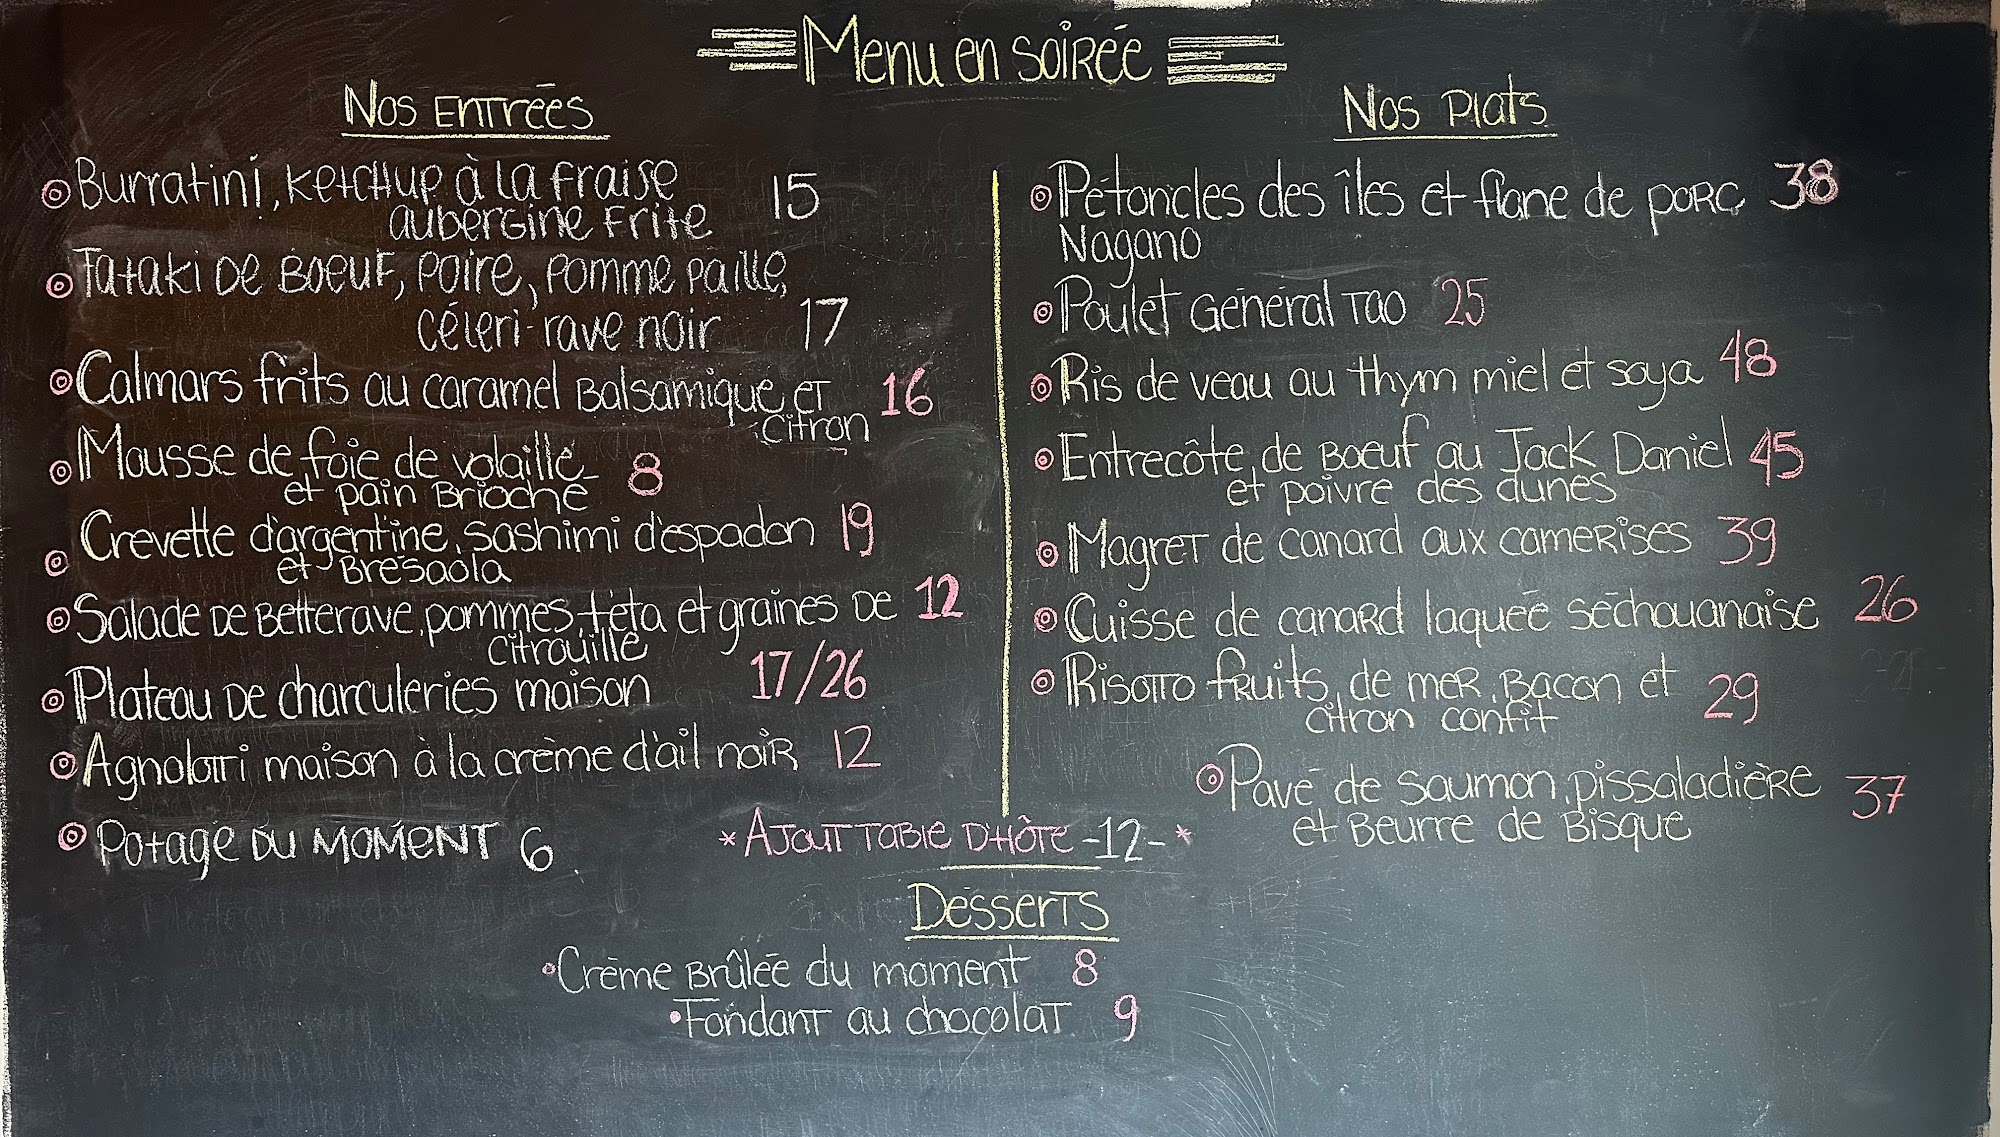 Menu en soirée
Nos Entrées
Burratini, ketchup à la fraise 15
aubergine frite
Tataki de boeuf, poire, pomme paille,
céleri-rave noir 17
Calmars frits au caramel balsamique et 16
citron
Mousse de foie de volaille 8
et pain brioché
Crevette d'argentine, sashimi d'espadon 19
et Brésaola
Salade de betterave, pommes, féta et graines de 12
citrouille
Plateau de charcuteries maison 17/26
Agnolotti maison à la crème d'ail noir 12
Potage du moment 6
Nos Plats
Pétoncles des îles et flanc de porc 38
Nagano
Poulet Général Tao 25
Ris de veau au thym miel et soya 48
Entrecôte de boeuf au Jack Daniel 45
et poivre des dunes
Magret de canard aux camerises 39
Cuisse de canard laquée séchouanaise 26
Risotto fruits de mer, bacon et 29
citron confit
Pavé de saumon, pissaladière 37
et beurre de bisque
*Ajout table d'hôte -12- *
Desserts
Crème brûlée du moment 8
Fondant au chocolat 9